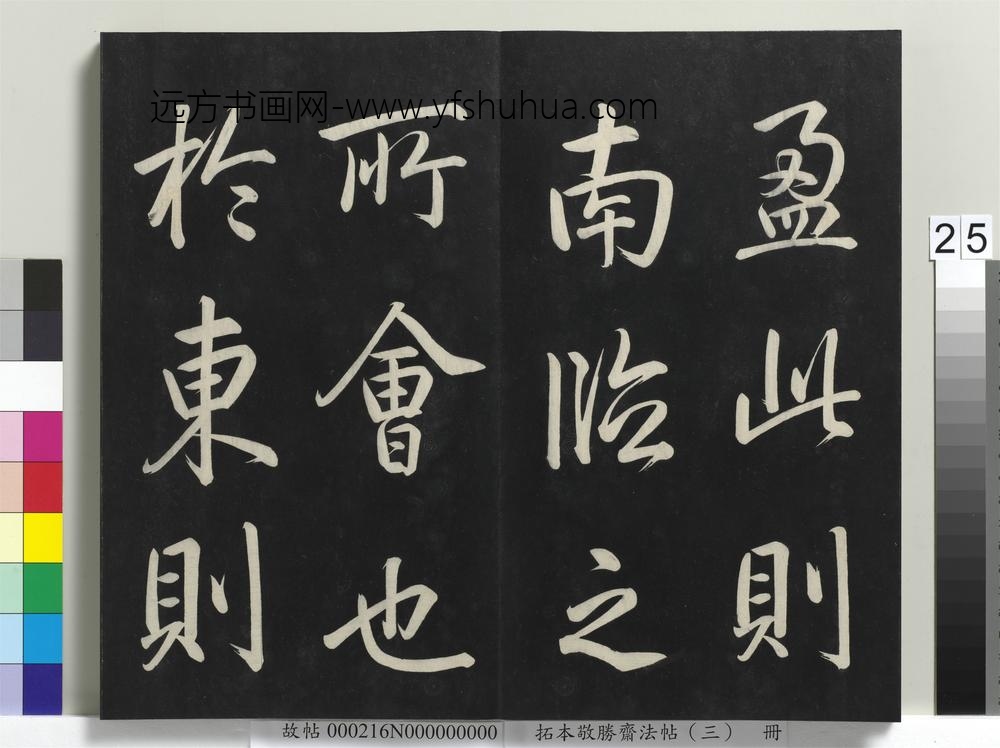 远方书画网-www.yfshuhua.com
盈此則
南臨之
所會也
於東則
25
故帖 000216N000000000 拓本敬勝齋法帖（三） 冊